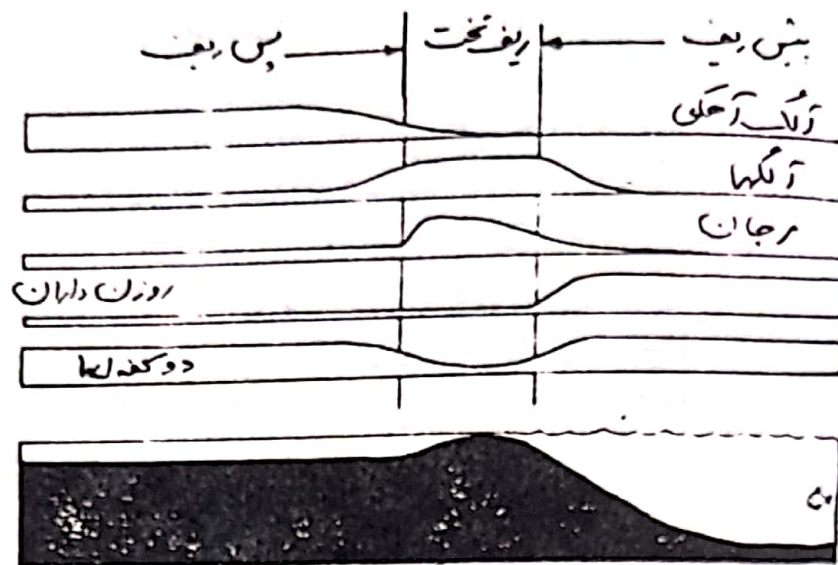 پیش ریف
ریف تخت
پس ریف
آلگ آهکی
آلگها
مرجان
روزن داران
دوکفه‌ایها